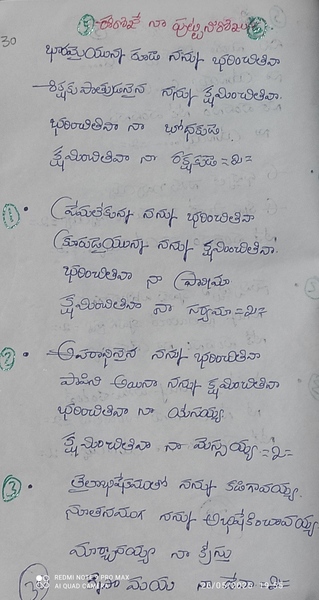 30
భారమైయున్న కూడ నన్ను భరించితివా
శిక్షకు పాత్రుడనైన నన్ను క్షమించితివా
భరించితివా నా బోధకుడ
క్షమించితివా నా రక్షకుడ =2=
1 • ప్రేమలేకున్న నన్ను భరించితివా
క్రూరుడైయున్న నన్ను క్షమించితివా
భరించితివా నా ప్రేమా
క్షమించితివా నా స్నేహమా =2=
2 • అపరాధినైన నన్ను భరించితివా
పాపిని అయినా నన్ను క్షమించితివా
భరించితివా నా యేసయ్య
క్షమించితివా నా మెస్సయ్య =2=
3 • తైలాభిషేకముతో నన్ను కడిగావయ్య
నూతనముగ నన్ను అభిషేకించావయ్య
మార్చావయ్యా నా క్రీస్తు
నా
REDMI NOTE 7 PRO MAX
AI QUAD CAMERA